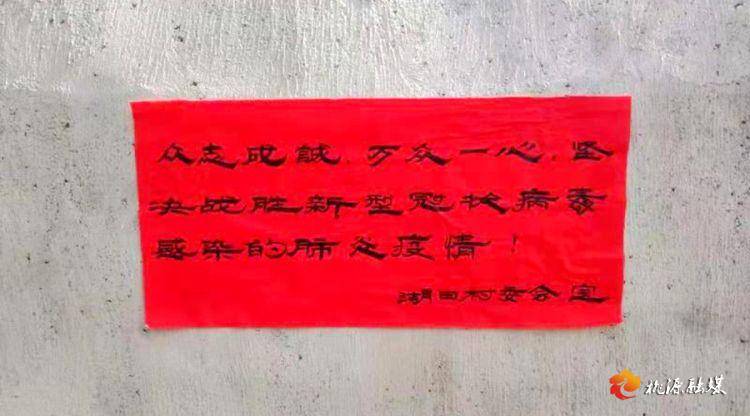 众志成誠，万众一心，坚
决战胜新型冠状病毒
感染的肺炎疫情！
湖田村委会宣
桃源融媒